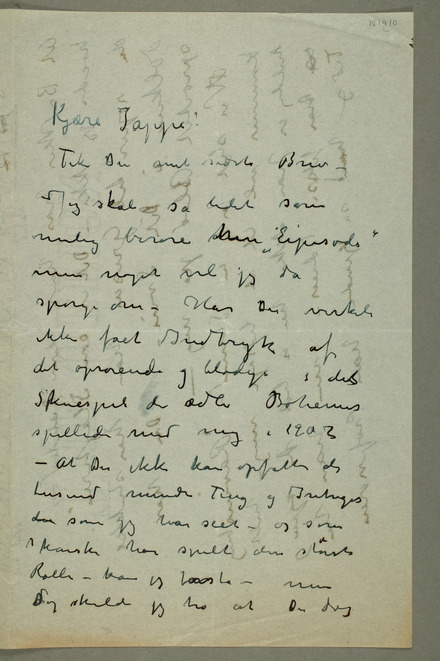 N 1910
Kjære Jappe!
Tak Du mit sidste Brev –
– Jeg skal så lidet som
mulig berøre „Episode"
men noget vil jeg da
spørge om – Har Du virkelig
ikke fået Indtryk af
det oprørende og blodige i det
Skuespil de ædle Bohemer
spillede med mig i 1902
– At Du ikke kan opfatte de
tusind mindre Ting og Intriger
som jeg har seet – og som
kanske har spilt den største
Rolle – kan jeg forstå – men
Dog skulde jeg tro at Du dog